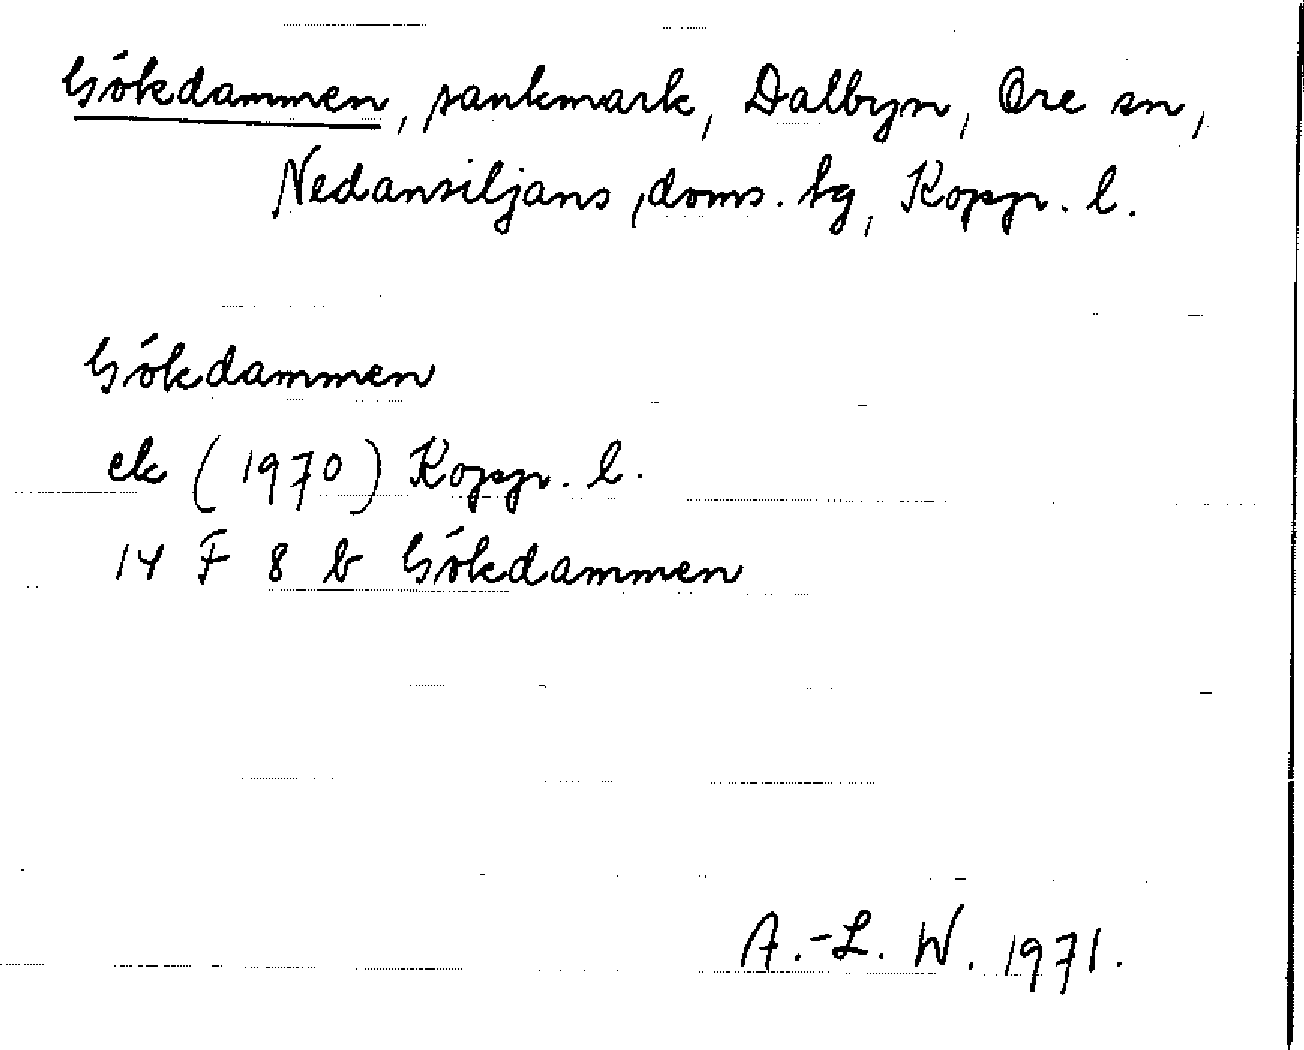 Gökdammen, sankmark, Dalbyn, Ore sn,
Nedansiljans doms. tg, Kopp. l.
Gökdammen
ek (1970) Kopp. l.
14 F 8 b Gökdammen
A.-L. W. 1971.